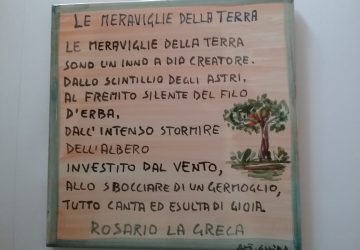 LE MERAVIGLIE DELLA TERRA
LE MERAVIGLIE DELLA TERRA
SONO UN INNO A DIO CREATORE.
DALLO SCINTILLIO DEGLI ASTRI,
AL FREMITO SILENTE DEL FILO
D'ERBA,
DALL'INTENSO STORMIRE
DELL'ALBERO
INVESTITO DAL VENTO,
ALLO SBOCCIARE DI UN GERMOGLIO,
TUTTO CANTA ED ESULTA DI GIOIA.
ROSARIO LA GRECA